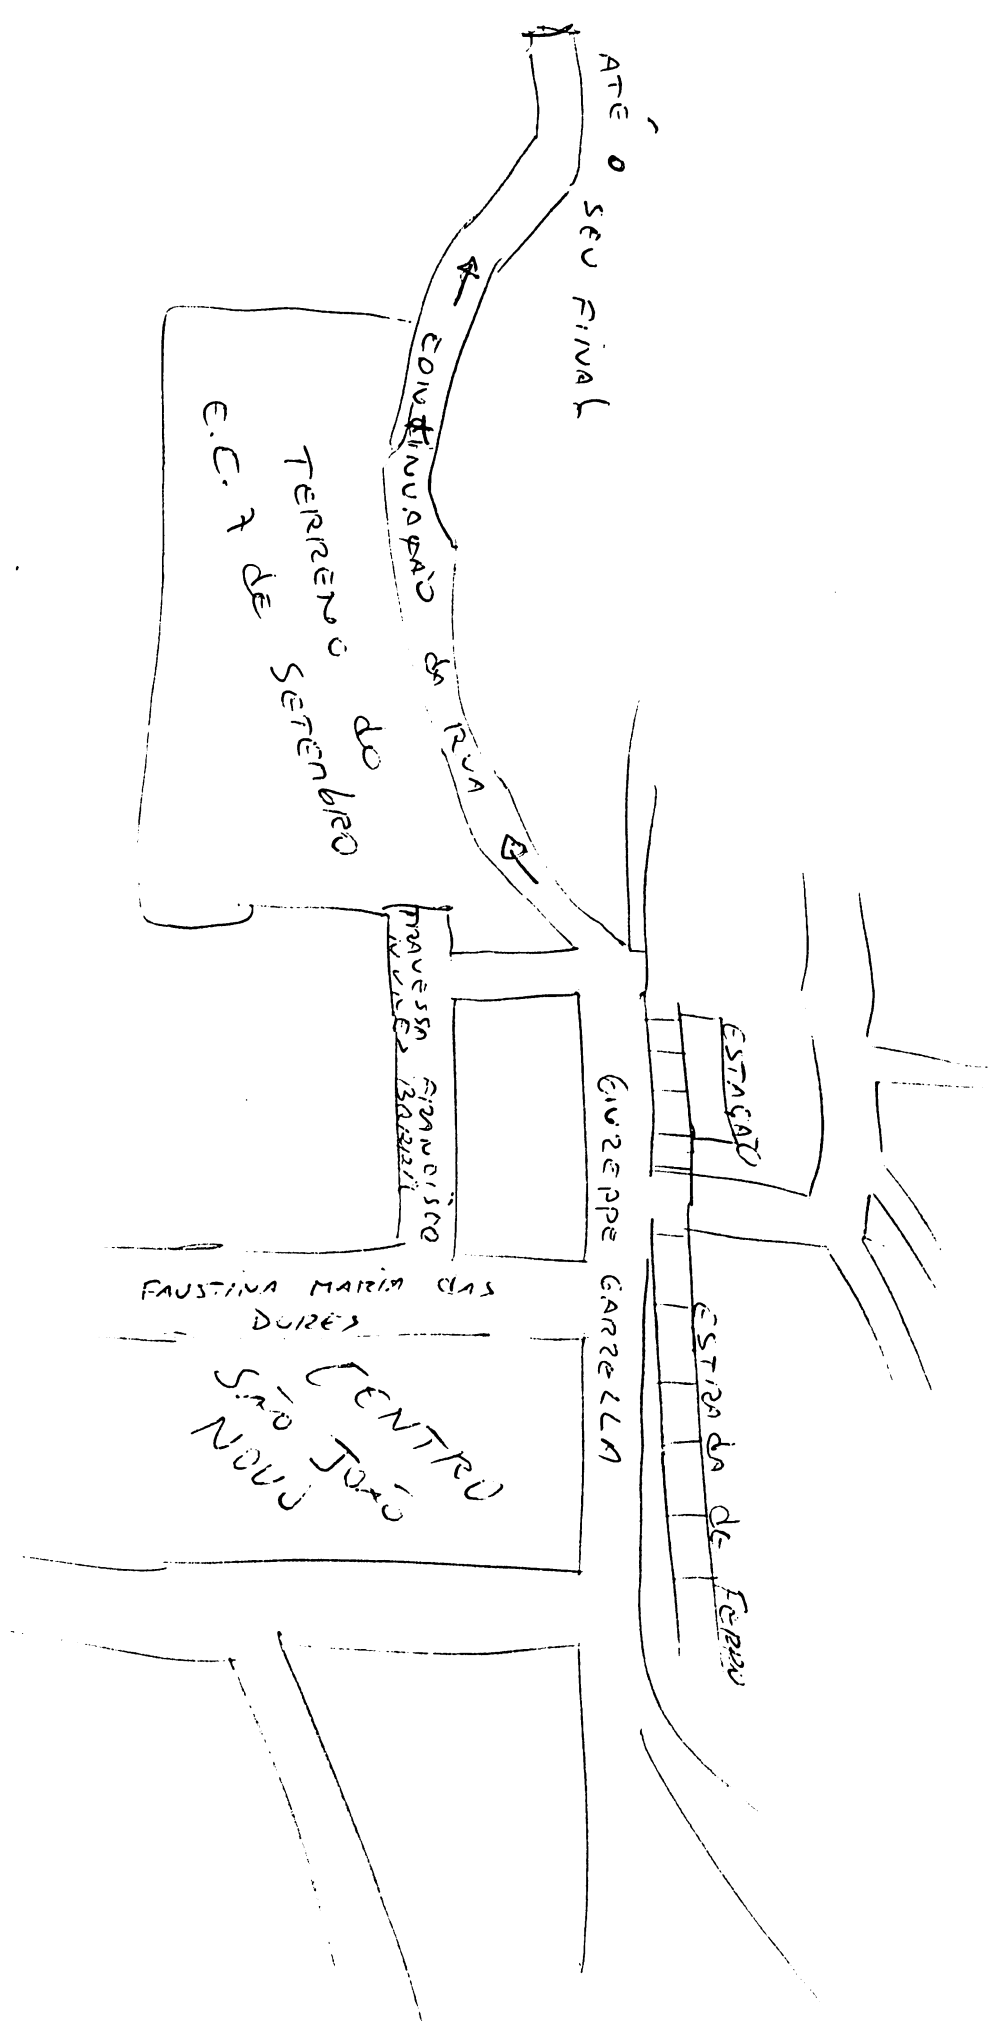 ATÉ O SEU FINAL
CONTINUAÇÃO da RUA
TERRENO do
E.C. 7 de SETEMBRO
TRAVESSA FRANCISCO
BARRIA
ESTAÇÃO
GIUZEPPE GARZELLA
ESTRADA de FERRO
FAUSTINA MARIA DAS
DORES
CENTRO
SÃO JOÃO
NOVO